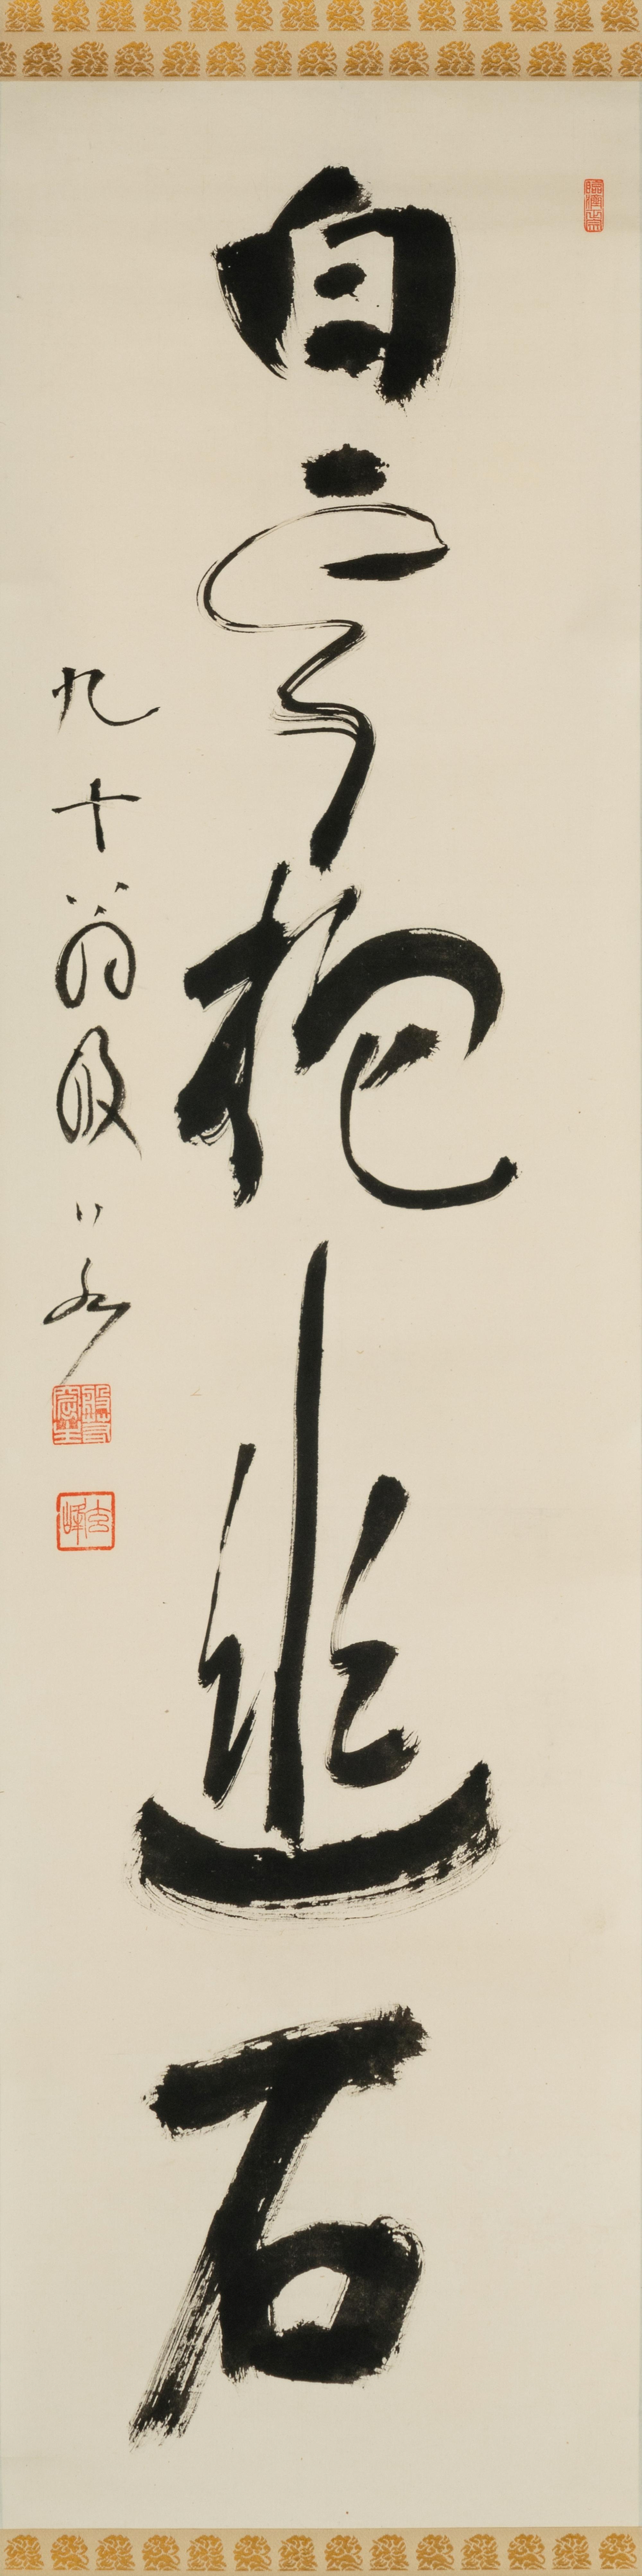 白雲抱幽石
九十翁般若
玄峰